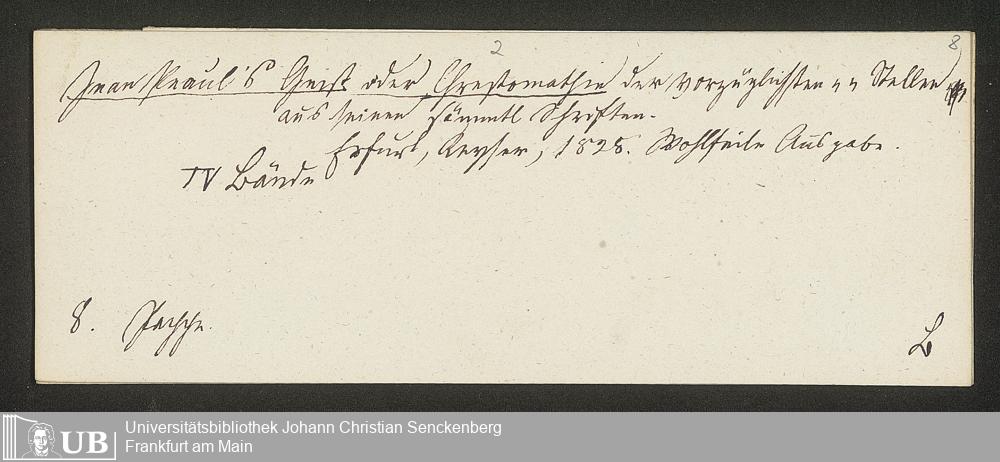 2
8
Jean Paul's Geist oder Chrestomathie der vorzüglichsten " " Stellen
aus seinen sämmtl Schriften.
Erfurt, Keyser, 1828. Wohlfeile Ausgabe.
IV Bände
8. Pappe.
B
UB
Universitätsbibliothek Johann Christian Senckenberg
Frankfurt am Main